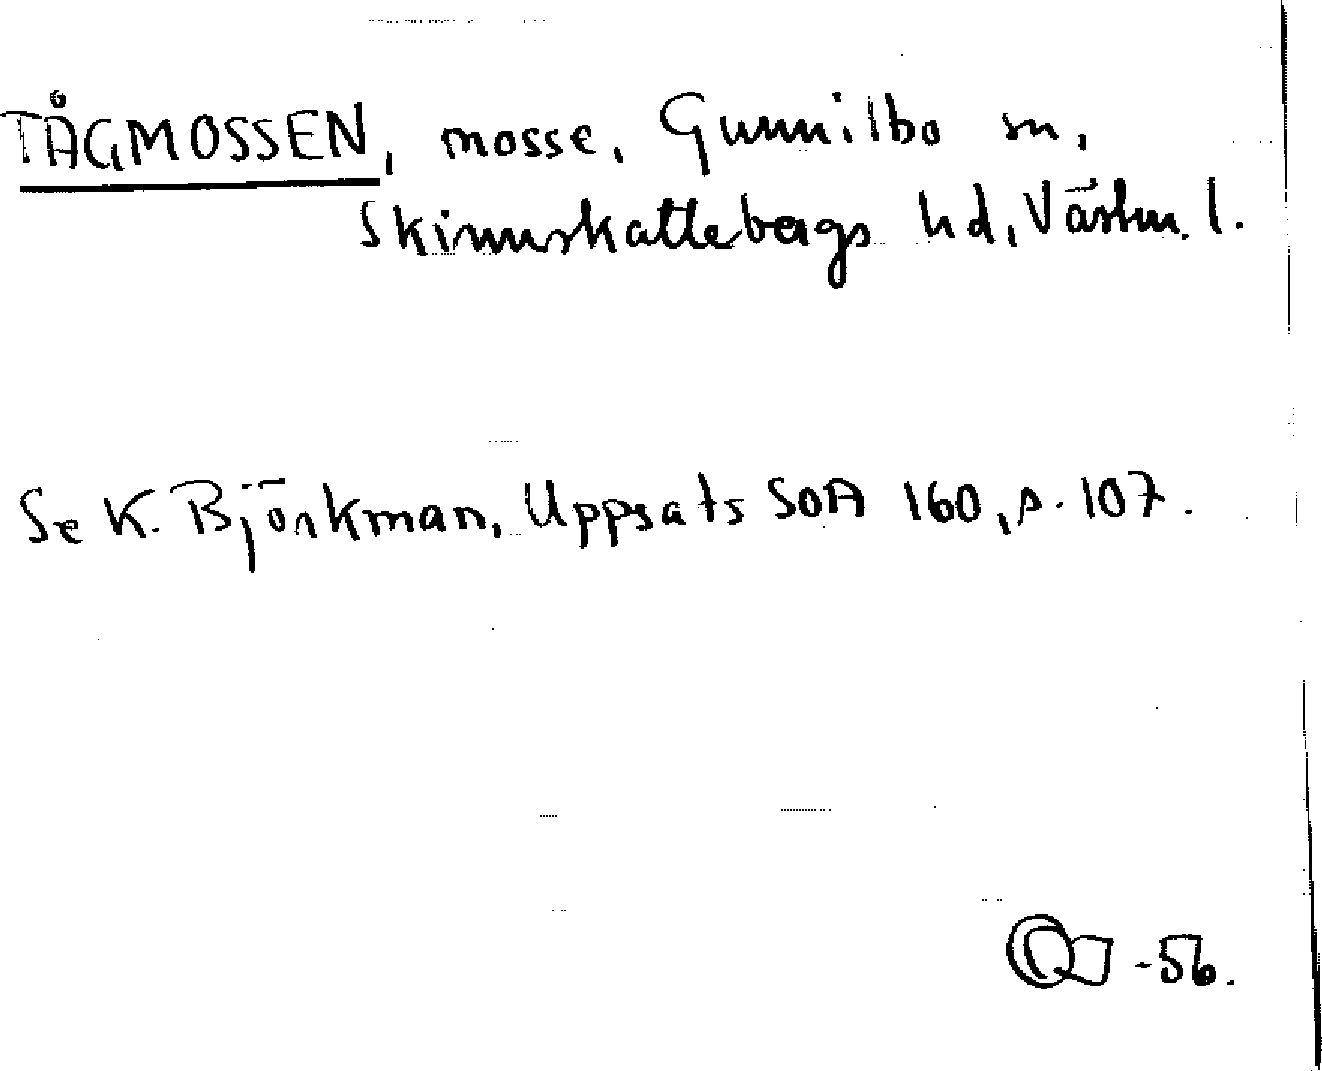 TÅGMOSSEN, mosse, Gunnilbo sn,
Skinnskattebergs hd, Västm. l.
Se K. Björkman, Uppsats SOA 160, s. 107.
-56.